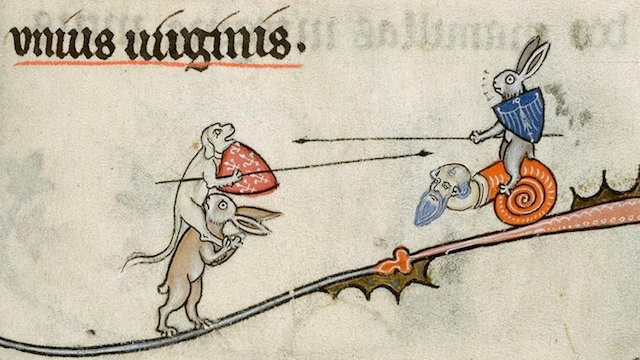 vnius uirginis.